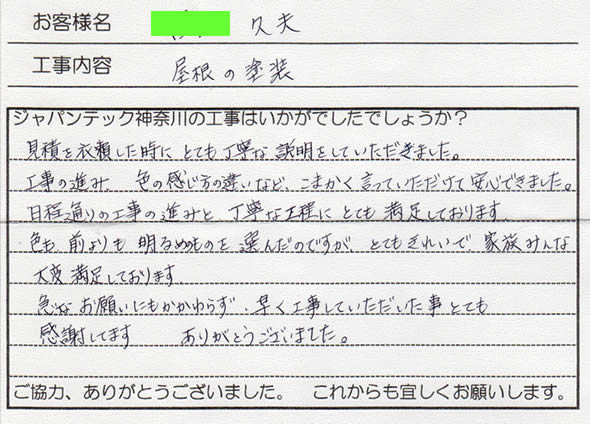 お客様名 久夫
工事内容 屋根の塗装
ジャパンテック神奈川の工事はいかがでしたでしょうか？
見積を依頼した時に とても丁寧な 説明をしていただきました。
工事の進み、色の感じ方の違いなど、こまかく言っていただけて 安心できました。
日程通りの工事の進みと、丁寧な工程に とても 満足しております。
色も、前よりも 明るめものを 選んだのですが、とてもきれいで、家族みんな
大変満足しております。
急な お願いにもかかわらず、早く工事していただいた事とても
感謝してます ありがとうございました。
ご協力、ありがとうございました。 これからも宜しくお願いします。